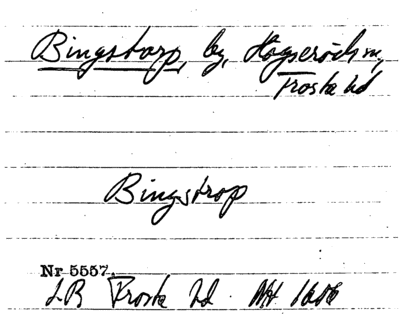 Bingstorp, by, Högseröds sn,
Frosta hd
Bingstrop
Nr 5557.
LB Frosta hd. Mt 16